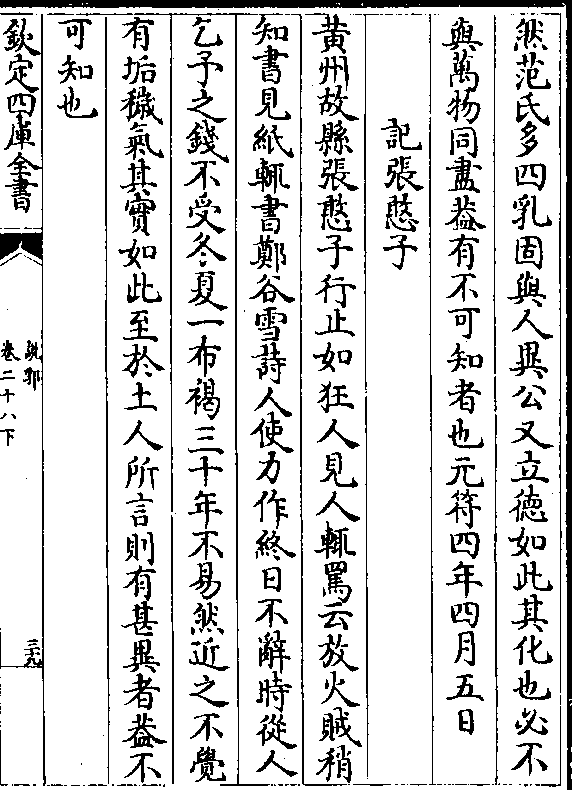 然范氏多四乳固與人異公又立德如此其化也必不
與萬物同盡葢有不可知者也元符四年四月五日
記張憨子
黄州故縣張憨子行止如狂人見人輒罵云放火賊稍
知書見紙輒書鄭谷雪詩人使力作終日不辭時從人
乞予之錢不受冬夏一布褐三十年不易然近之不覺
有垢穢氣其實如此至於土人所言則有甚異者葢不
可知也
欽定四庫全書
說郛
卷二十八下
三十九